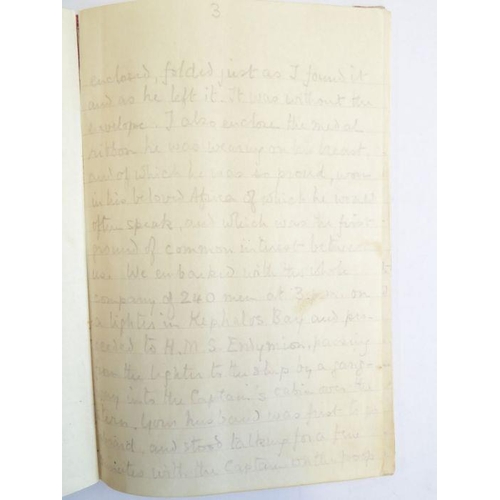 3
enclosed, folded just as I found it
and as he left it. It was without the
envelope. I also enclose the medal
ribbon he was wearing on his breast,
and of which he was so proud, won
in his beloved Africa of which he would
often speak, and which was the first
ground of common interest between
us. We embarked with the whole
company of 240 men at 3 on
a lighter in Kephelos Bay and pro-
ceeded to H.M.S. Endymion, passing
from the lighter to the ship by a gang-
way into the Captain's cabin over the
stern. Your husband was first to
and stood talking for a few
minutes with the Captain on the poop